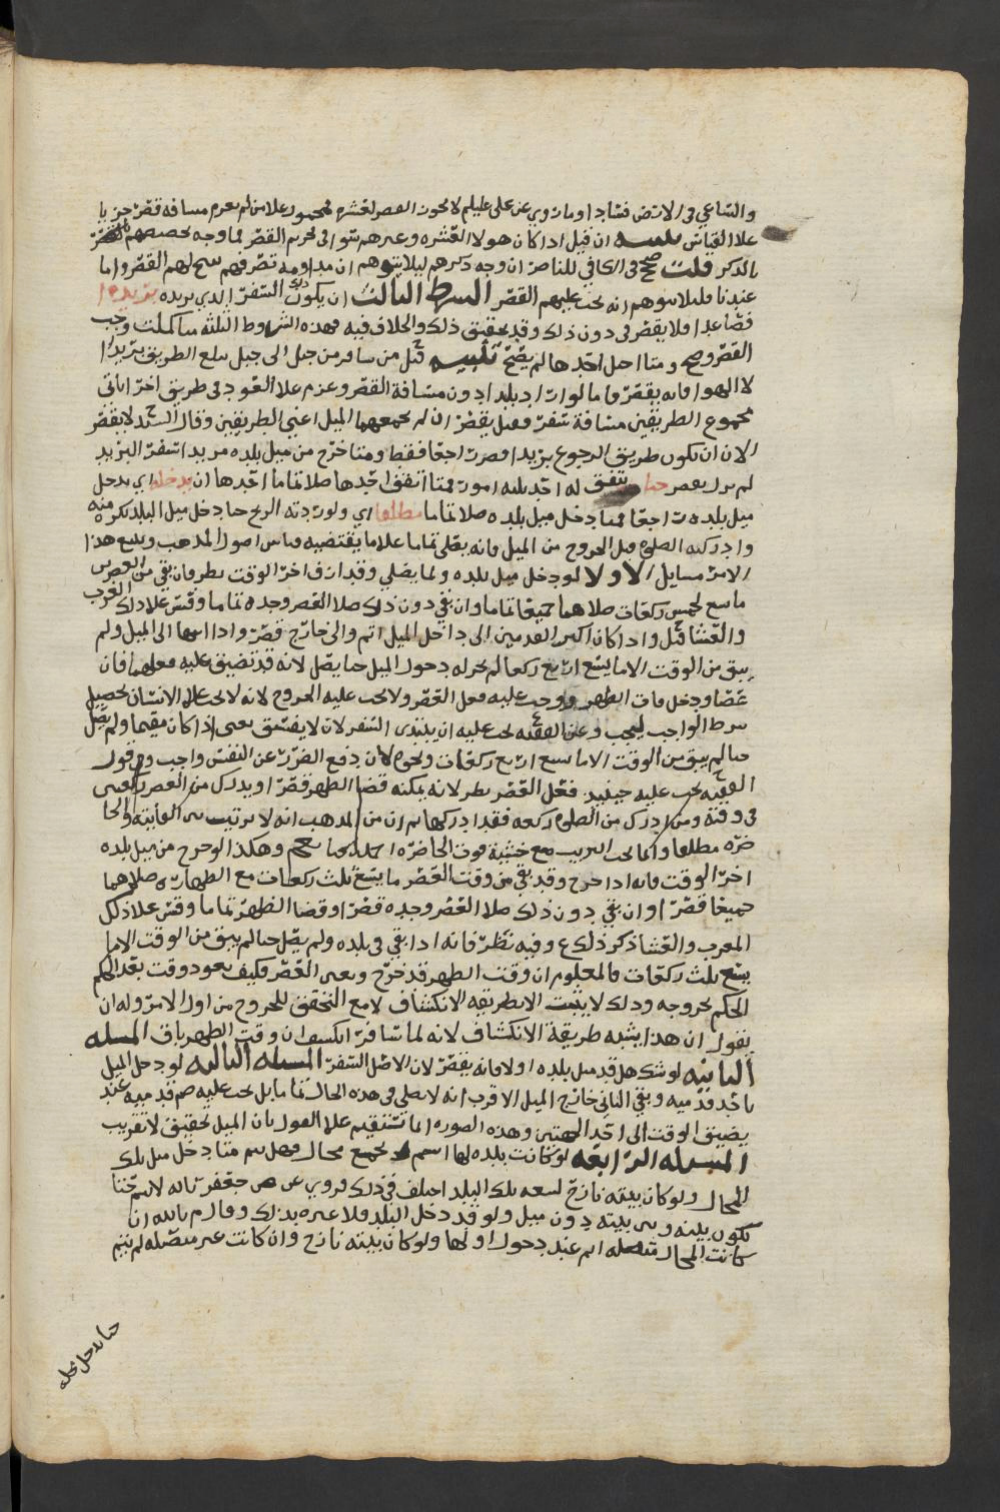 والساعي في الارض فسادا وما روي عن علي عليلم لا يجوز القصر لعشره فمحمول علا من لم يعزم مسافة قصر جريا
علا القياس تنبيه ان قيل اذا كان هولا العشره وغيرهم سوا في تحريم القصر فما وجه تخصيصهم
بالذكر قلت في الكافي للناصر ان وجه ذكرهم ليلا يتوهم ان مداومة تصرفهم تبيح لهم القصر واما
عندنا فليلا يتوهم انه يجب عليهم القصر الشرط الثالث ان يكون السفر الذي يريده بريدا
فصاعدا فلا يقصر في دون ذلك وقد تحقيق ذلك والخلاف فيه فهذه الشروط الثلثه متا كملت وجب
القصر وصح ومتا اختل احدها لم يصح تنبيه قيل من سافر من جبل الى جبل يبلغ الطريق بريدا
لا الهوا فانه يقصر فاما لو اراد بلدا دون مسافة القصر وعزم علا العود في طريق اخرا ياتي
مجموع الطريقين مسافة سفر فقيل يقصر ان لم يجمعهما الميل اعني الطريقين وقال السيد لا يقصر
الا ان تكون طريق الرجوع بريدا قصر راجعا فقط ومتا خرج من ميل بلده مريدا سفر البريد
لم يزل يقصر حتا يتفق له احد ثلثه امور فمتا اتفق احدها صلا تماما احدها ان يدخل اي يدخل
ميل بلده راجعا فمتا دخل ميل بلده صلا تماما مطلقا اي ولو ردته الريح حتا دخل ميل البلد
وادركته الصلوة قبل الخروج من الميل فانه يصلي تماما علا ما يقتضيه قياس اصول المذهب ويتبع هذا
الامر مسايل الاولا لو دخل ميل بلده ولما يصلي وقد ازف اخر الوقت نظر فان بقي من العصر
ما يسع لخمس ركعات صلاهما جميعا تماما وان بقي دون ذلك صلا العصر وحده تماما وقس علا ذلك المغرب
والعشا قيل واذا كان اكبر القدمين الى داخل الميل اتم والى خارج قصر واذا انتها الى الميل ولم
يبق من الوقت الا ما يسع اربع ركعات لم يجز له دخول الميل حتا يصلي لانه قد تضيق عليه فعلهما فان
عصا ودخل فات الظهر ووجب عليه فعل العصر ولا يجب عليه الخروج لانه لا يجب علا الانسان تحصيل
شرط الواجب ليجب وعن الفقيه يجب عليه ان يبتدي السفر لان لا يفسق يعني اذا كان مقيما ولم يصل
حتا لم يبق من الوقت الا ما يسع اربع ركعات ونحوه لان دفع الضرر عن النفس واجب وفي قول
الفقيه يجب عليه حينيذ فعل العصر نظر لانه يمكنه قضا الظهر قصرا ويدرك من العصر ركعتي
في وقته ومن ادرك من الصلوة ركعه فقد ادركها ثم ان من المذهب انه لا ترتيب بين الفايته والحا
ضره مطلقا وانما يجب الترتيب مع خشية فوت الحاضره وهكذا لو خرج من ميل بلده
اخر الوقت فانه اذا خرج وقد بقي من وقت العصر ما يسع ثلث ركعات مع الطهاره صلاهما
جميعا قصرا وان بقي دون ذلك صلا العصر وحده قصرا وقضا الظهر تماما وقس علا ذلك
المغرب والعشا ذكر ذلك ع وفيه نظر فانه اذا بقي في بلده ولم يصل حتا لم يبق من الوقت الا ما
يسع ثلث ركعات فالمعلوم ان وقت الظهر قد خرج وبقي العصر فكيف يعود وقت بعد الحكم
الحكم بخروجه وذلك لا يثبت الا بطريقة الانكشاف لا مع التحقق للخروج من اول الامر وله ان
يقول ان هذا يشبه طريقة الانكشاف لانه لما سافر انكشف ان وقت الظهر باق المسله
الثانيه لو شك هل قد ميل بلده اولا فانه يقصر لان الاصل السفر المسله الثالثه لو دخل الميل
باحد قدميه وبقي الثاني خارج الميل الاقرب انه لا يصلي في هذه الحال تماما بل يجب عليه ضم قدميه عند
يضيق الوقت الى احد الجهتين وهذه الصوره انما تستقيم علا القول بان الميل تحقيق لا تقريب
المسله الرابعه لو كانت بلده لها اسم يجمع محال فهل يتم متا دخل ميل تلك
المحال ولو كان بيته نازح لسعه تلك البلد اختلف في ذلك فروي عن ص جعفر انه لا يتم حتا
تكون بينه وبين بيته دون ميل ولو قد دخل البلد فلا عبره بذلك وقال م بالله ان
كانت المحال متصله اتم عند دخول اولها ولو كان بيته نازح وان كانت غير متصله لم يتم
حتا يدخل محله